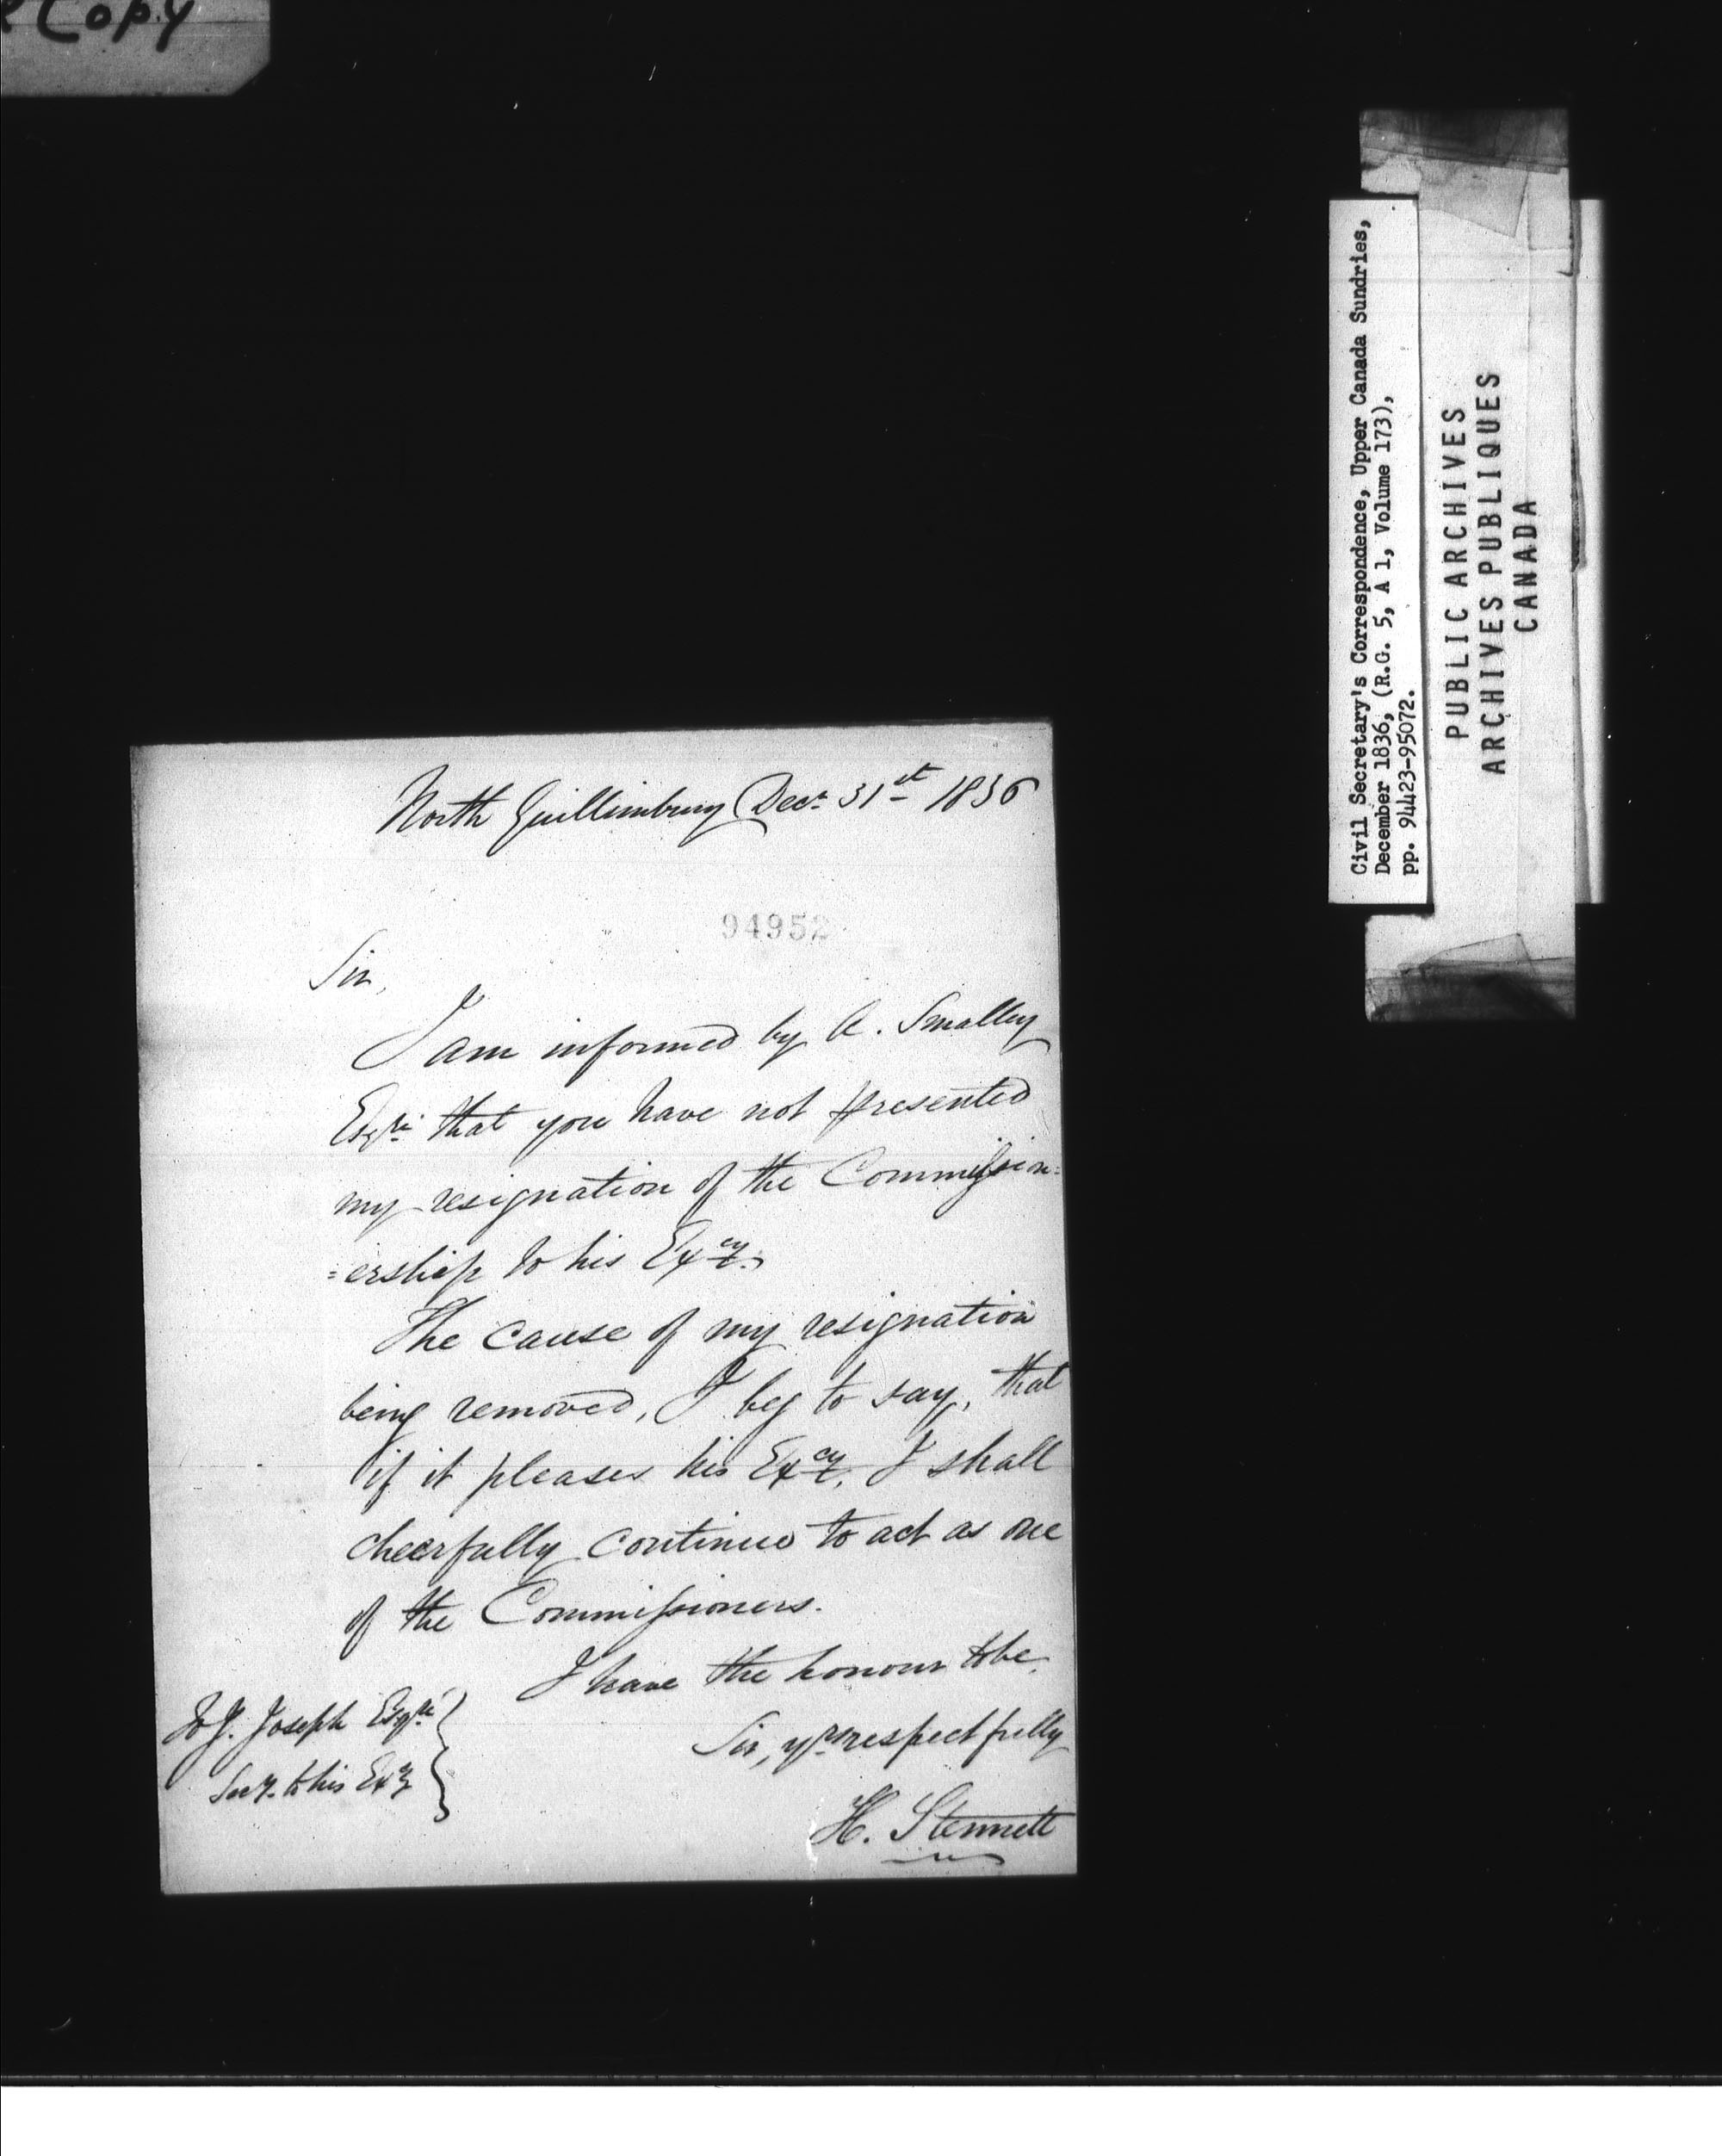 Copy
North Guillimbury Decr 31st 1836
94952
Sir,
I am informed by A. Smalley
Esqre that you have not presented
my resignation of the Commission=
=ership to his Excy.
The cause of my resignation
being removed, I beg to say, that
if it pleases his Excy, I shall
cheerfully continue to act as one
of the Commissioners.
I have the honour to be
Sir, yrs respectfully
H. Stennett
To J. Joseph Esqre
Secy. to his Excy
Civil Secretary's Correspondence, Upper Canada Sundries,
December 1836, (R.G. 5, A 1, Volume 173),
pp. 94423-95072.
PUBLIC ARCHIVES
ARCHIVES PUBLIQUES
CANADA